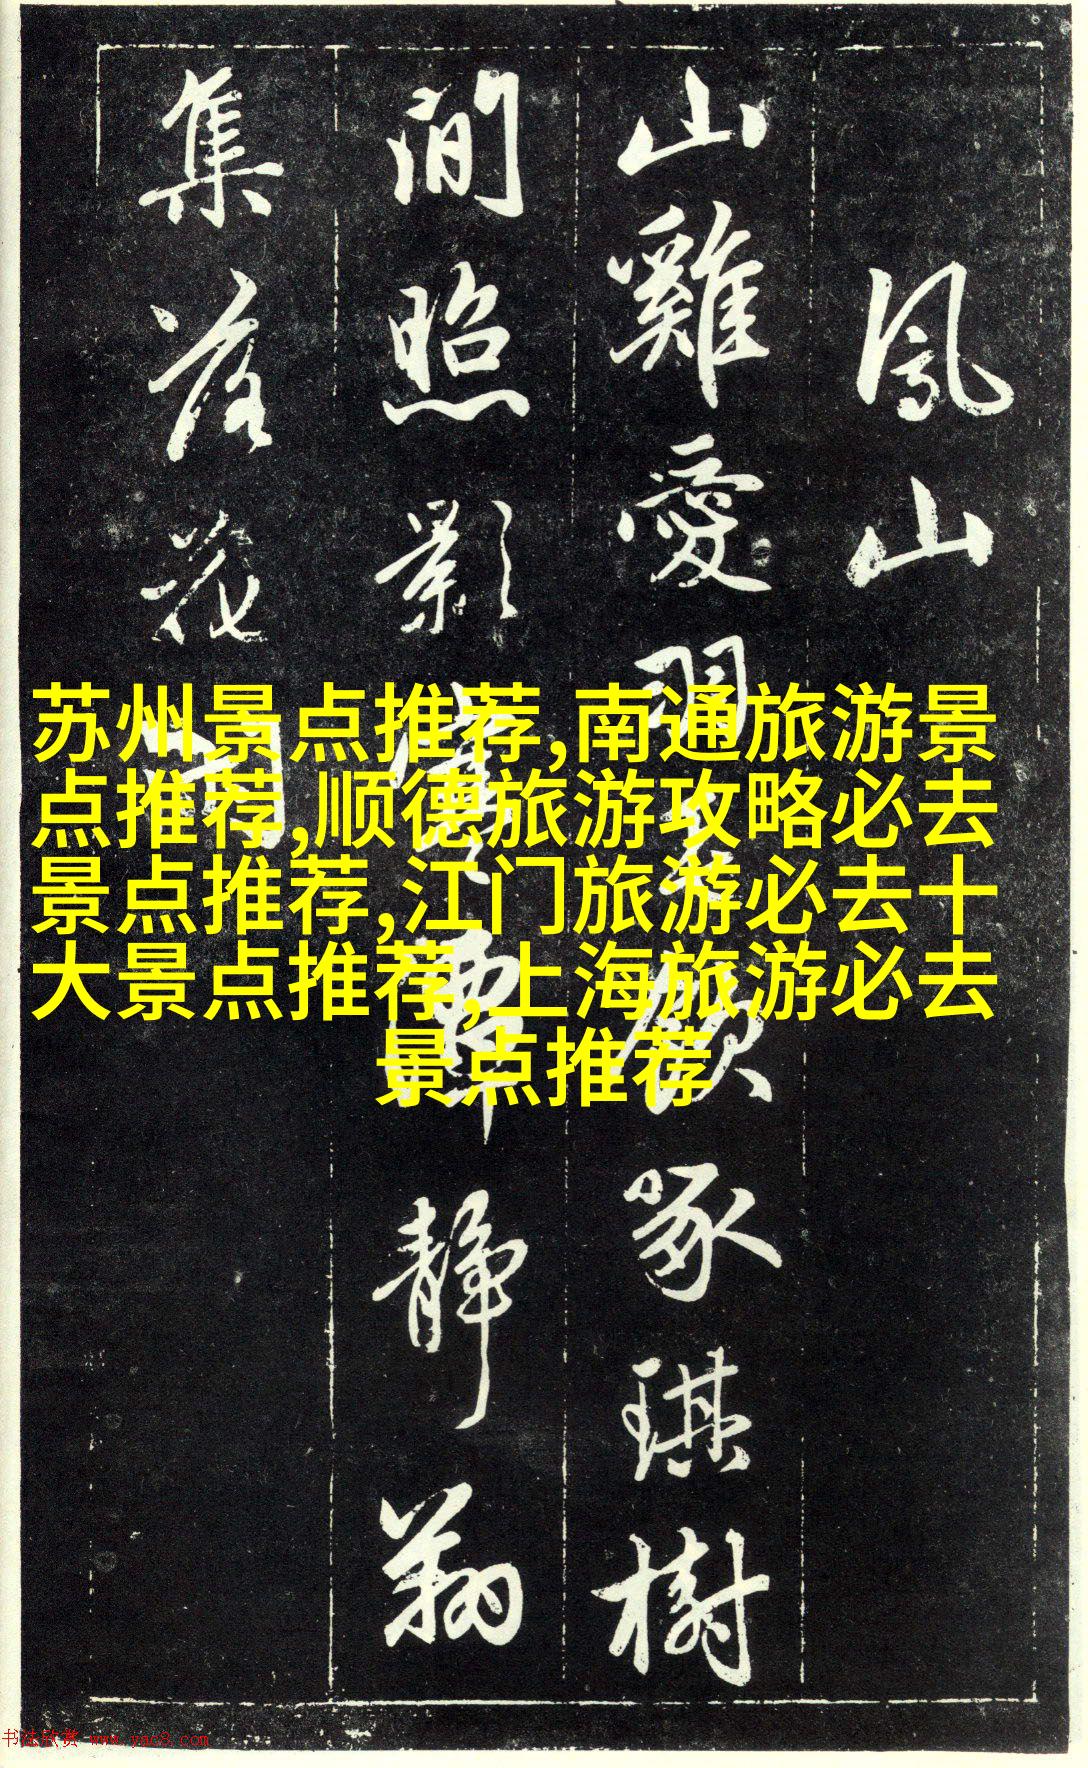 鳳山
山雞愛羽
啄琪樹
間照影
靜翔
集落花
苏州景点推荐,南通旅游景
点推荐,顺德旅游攻略必去
景点推荐,江门旅游必去十
大景点推荐,上海旅游必去
景点推荐
书法欣赏 www.yac8.com